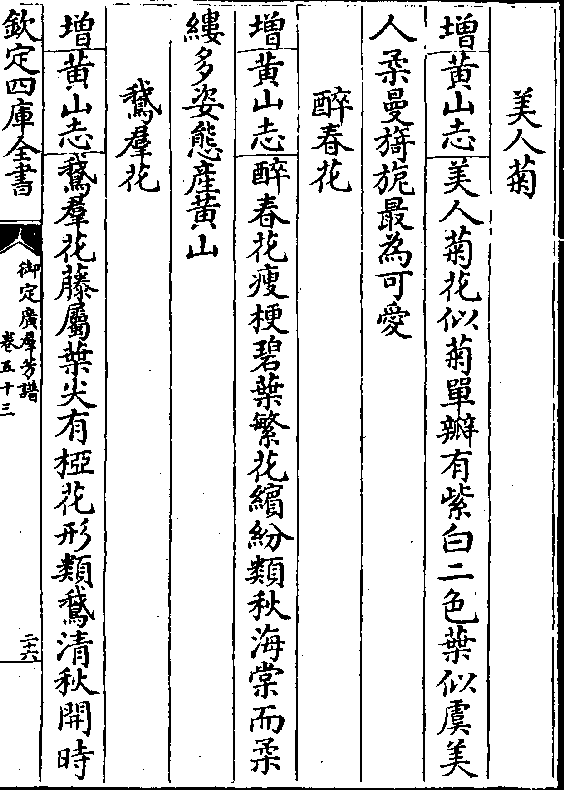 美人菊
增黄山志美人菊花似菊單瓣有紫白二色葉似虞美
人柔曼旖旎最為可愛
醉春花
增黄山志醉春花瘦梗碧葉繁花繽紛類秋海棠而柔
縷多姿態産黄山
鵞羣花
增黄山志鵞羣花藤屬葉尖有椏花形類鵞清秋開時
欽定四庫全書
御定廣羣芳譜
卷五十三
二十六